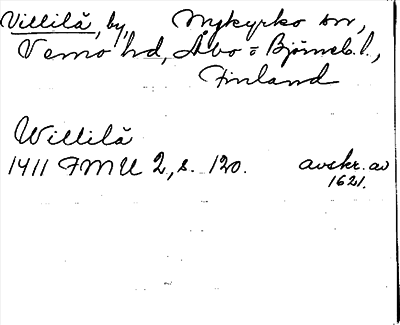 Villilä, by, Nykyrko sn,
Vemo hd, Åbo = Björneb. l.,
Finland
Willilä
1411 FMU 2, s. 120. avskr. av
1621.